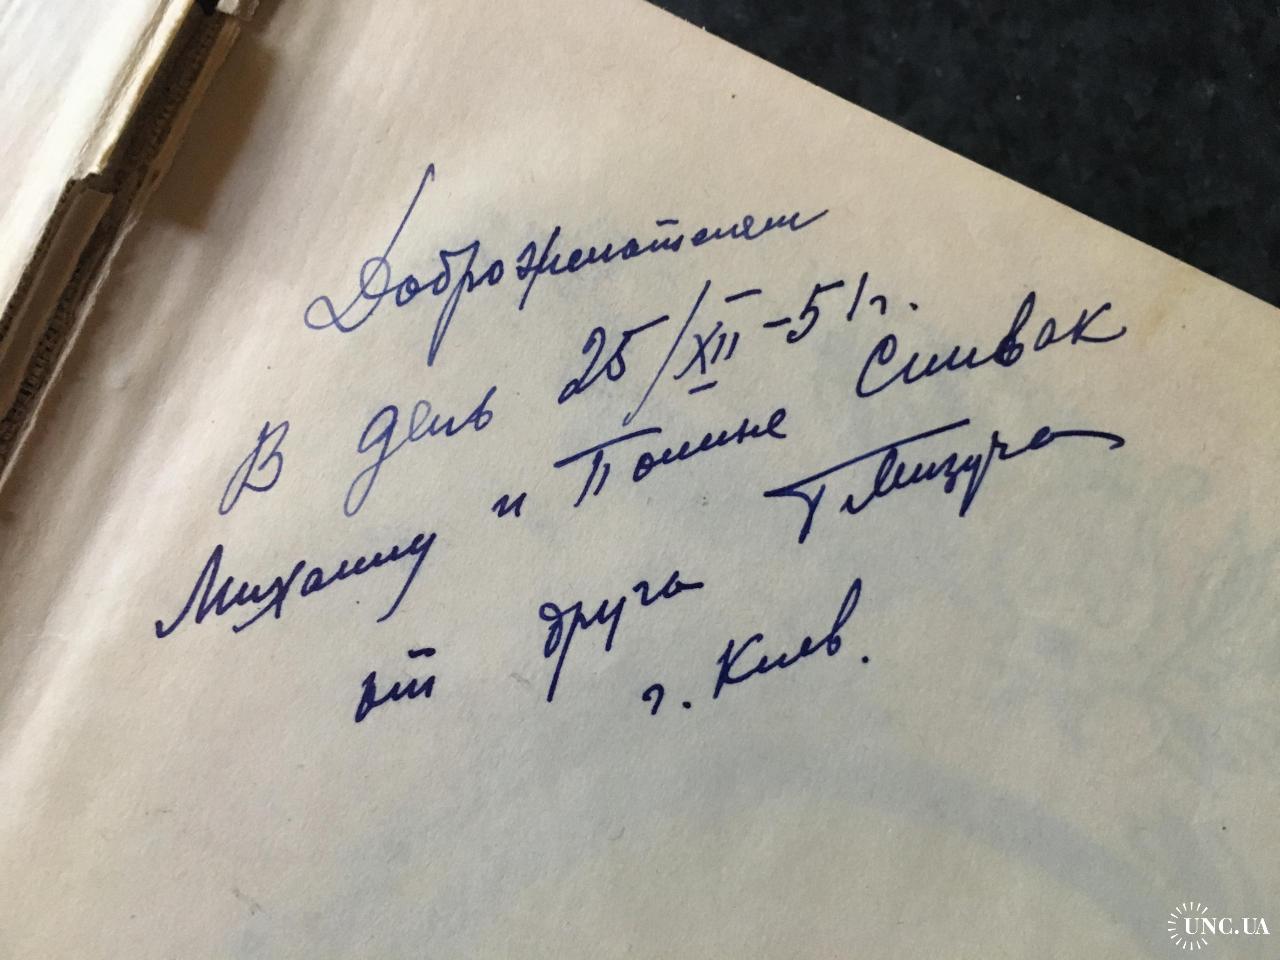 Доброжелателям
В день 25/XII-51г.
Михаилу и Полине Спивак
от друга
г. Киев.
UNC.UA